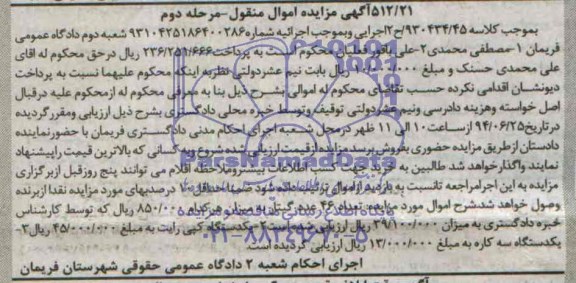 ۵۱۲/۲۱آگهی مزایده اموال منقول-مرحله دوم
بموجب کلاسه ۹۳۰۴۳۴/۴۵ح۲اجرایی وبموجب اجرائیه شماره ۹۳۱۰۴۲۵۱۸۶۴۰۰۲۸۶ شعبه دوم دادگاه عمومی
فریمان ۱-مصطفی محمدی۲-علی محکوم است به پرداخت۲۳۶/۲۵۱/۶۶۶ ریال درحق محکوم له اقای
علی محمدی حسنک و مبلغ ریال بابت نیم عشردولتی نظربه اینکه محکوم علیهما نسبت به پرداخت
دیونشان اقدامی نکرده حسب تقاضای محکوم له اموالی بشرح ذیل بنا به معرفی محکوم له ازمحکوم علیه درقبال
اصل خواسته وهزینه دادرسی ونیم عشردولتی توقیف وتوسط خبره محلی دادگستری بشرح ذیل ارزیابی ومقررگردیده
درتاریخ۹۴/۰۶/۲۵ ازساعت۱۰ الی ۱۱ ظهر درمحل شعبه اجرای احکام مدنی دادگستری فریمان با حضورنماینده
دادستان ازطریق مزایده حضوری بفروش برسد مزایده ازقیمت ارزیابی شده شروع وبه کسانی که بالاترین قیمت راپیشنهاد
نمایند واگذارخواهد شد طالبین به خرید جهت کسب اطلاعات بیشتروملاحظه اقلام می توانند پنج روزقبل ازبرگزاری
مزایده به این اجرامراجعه تانسبت به بازدید ازاموال ترتیب داده شود ضمنا حداقل ۱۰ درصدبهای مورد مزایده نقدا ازبرنده
وصول خواهد شدشرح اموال مورد مزایده: تعداد ۴۶ عدد به میزان هرکدام ۸۵۰/۰۰۰ ریال که توسط کارشناس
خبره دادگستری به میزان ۳۹/۱۰۰/۰۰۰ ریال ارزیابی شده است۲-یکدستگاه کپی رایت به مبلغ ۴۵/۰۰۰/۰۰۰ ریال۳-
یکدستگاه سه کاره به مبلغ ۱۳/۰۰۰/۰۰۰ ریال ارزیابی گردیده است.
اجرای احکام شعبه ۲ دادگاه عمومی حقوقی شهرستان فریمان
ParsNamadData
پایگاه اطلاع رسانی مناقصه و مزایده
۰۲۱-۸۸۳۴۹۶۷۰-۵